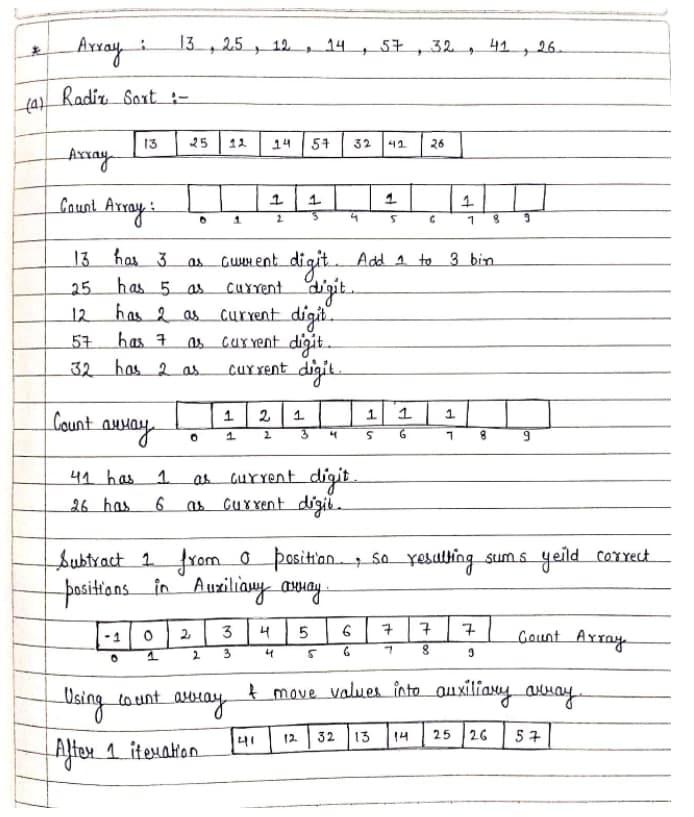 * Array : 13 , 25 , 12 , 14 , 57 , 32 , 41 , 26.
(a) Radix Sort :-
Array 13 25 12 14 57 32 41 26
Count Array : 1 1 1 1
0 1 2 3 4 5 6 7 8 9
13 has 3 as current digit. Add 1 to 3 bin
25 has 5 as current digit.
12 has 2 as current digit.
57 has 7 as current digit.
32 has 2 as current digit.
Count array 1 2 1 1 1 1
0 1 2 3 4 5 6 7 8 9
41 has 1 as current digit.
26 has 6 as current digit.
Subtract 1 from 0 position. , so resulting sums yeild correct
positions in Auxiliary array.
-1 0 2 3 4 5 6 7 7 7 Count Array
0 1 2 3 4 5 6 7 8 9
Using count array & move values into auxiliary array.
After 1 iteration 41 12 32 13 14 25 26 57